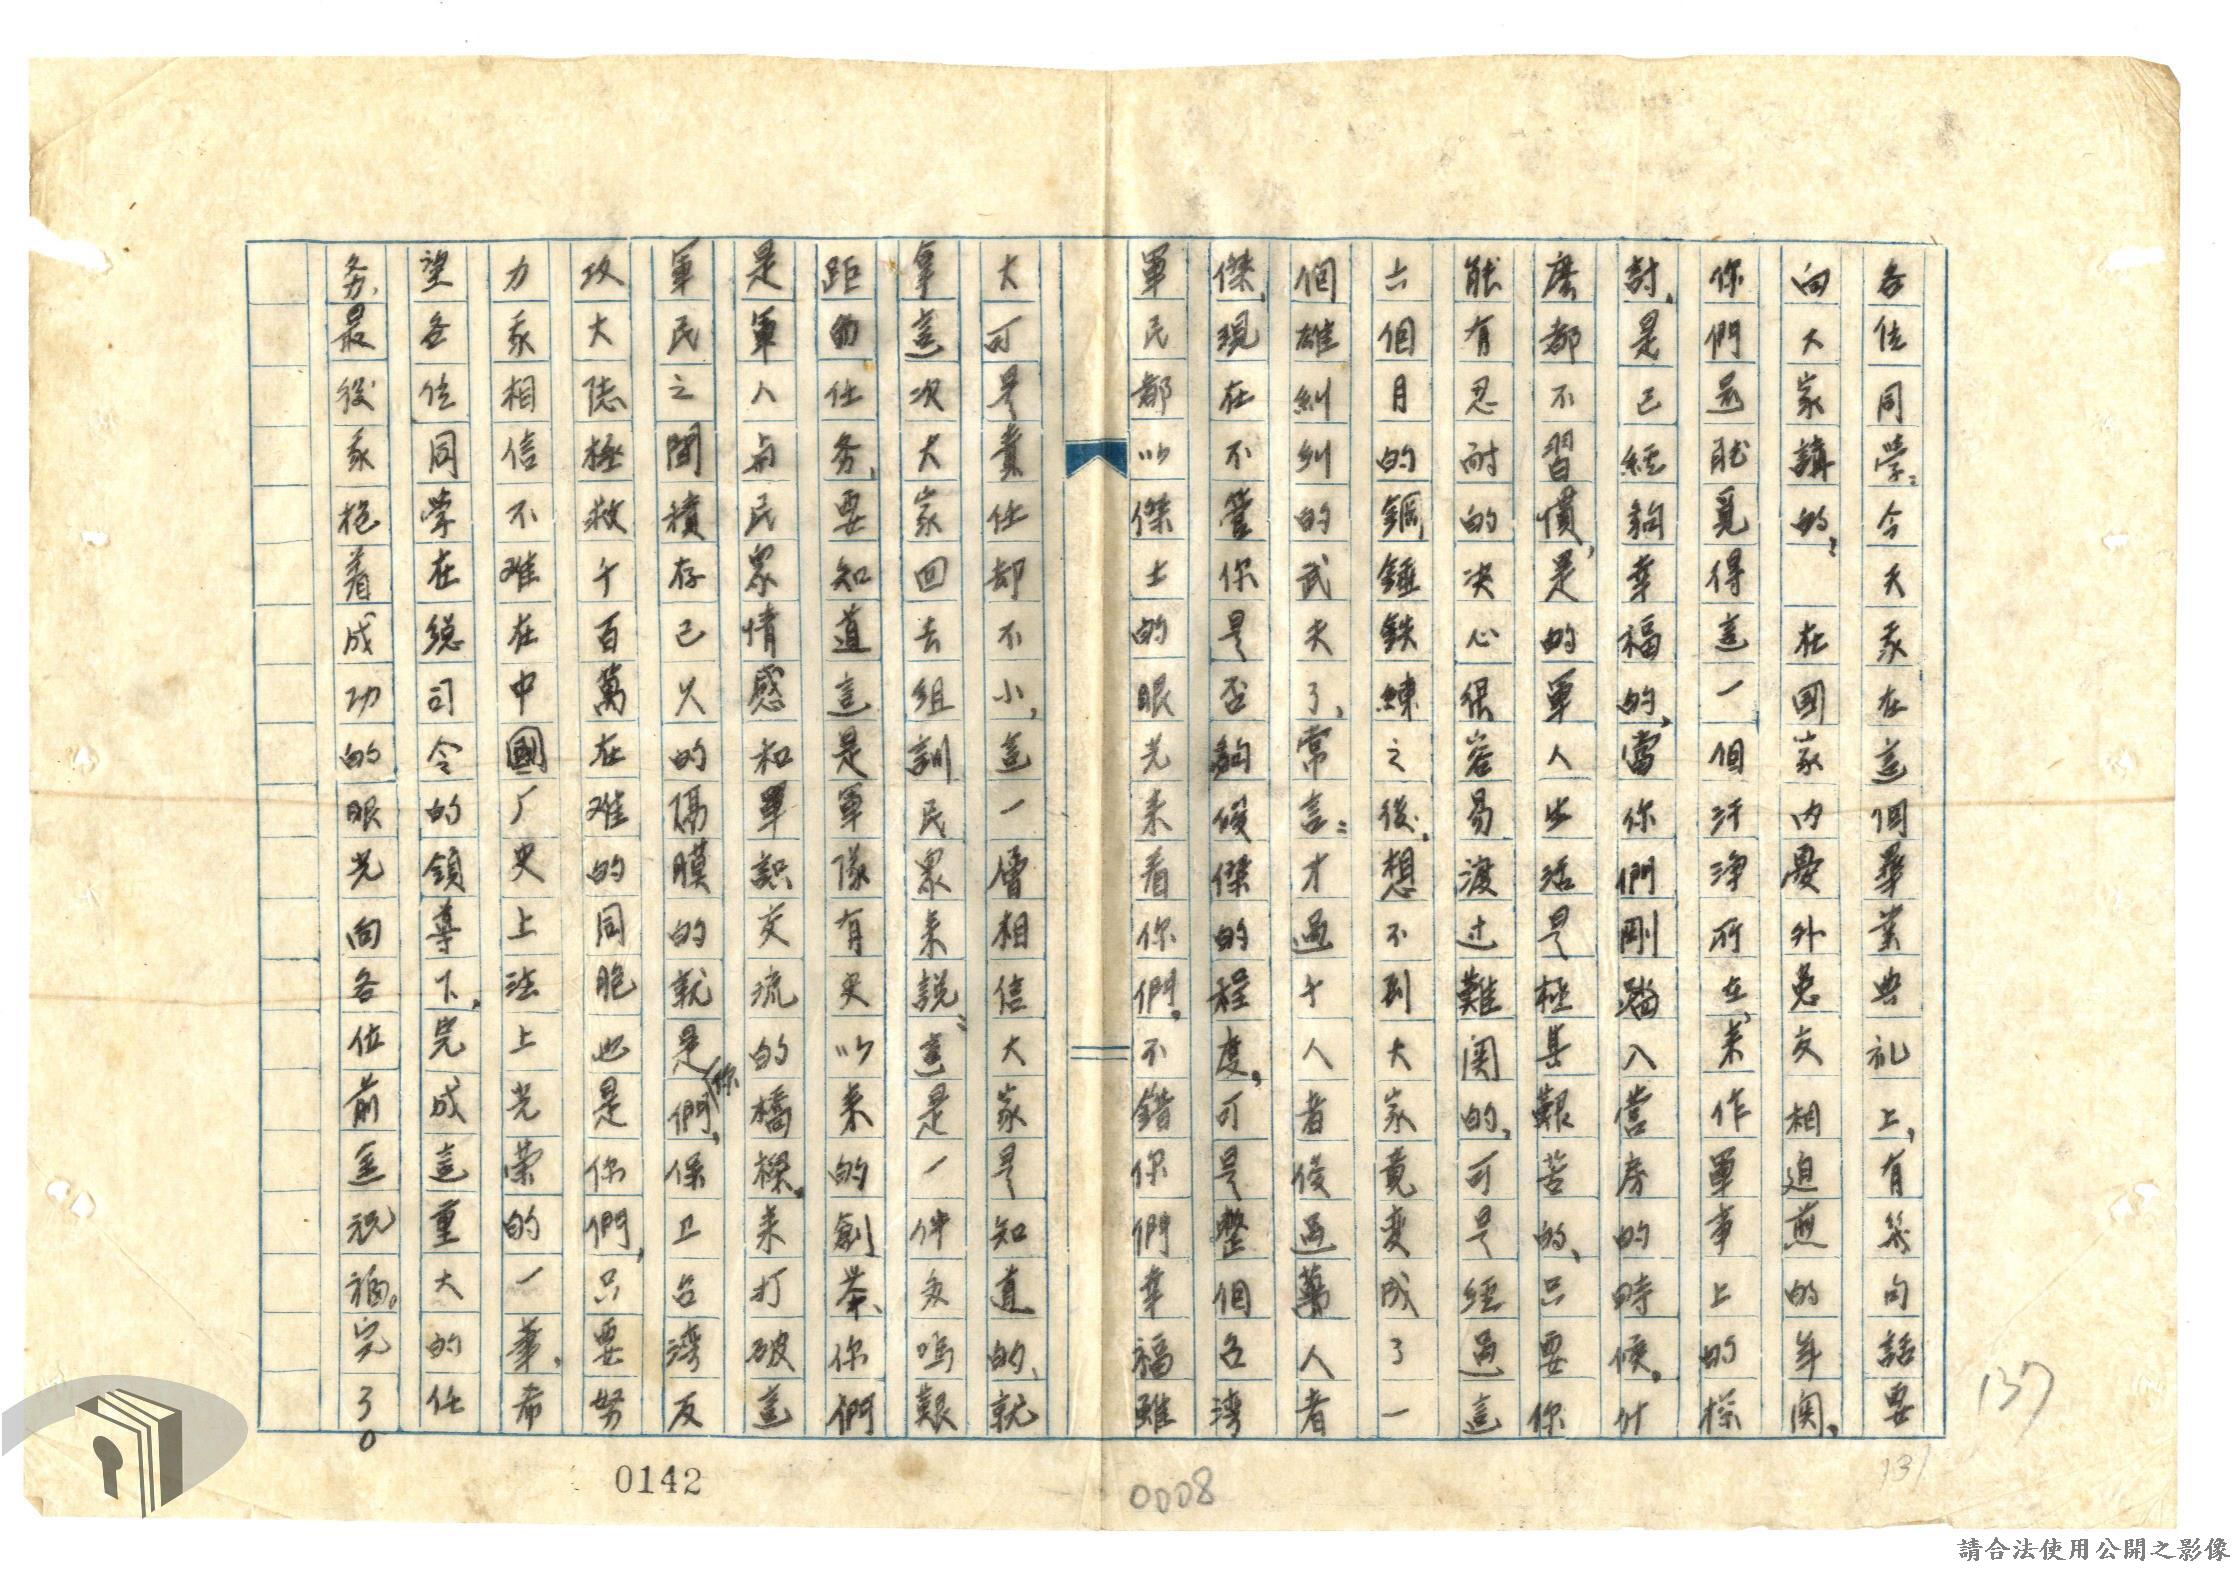 各位同學：今天我在這個畢業典礼上，有幾句話要
向大家講的：　在國家内憂外患交相迫煎的年関，
你們還能覓得這一個汗淨所在，來作軍事上的探
討，是已經夠幸福的，當你們剛踏入営房的時候，什
麼都不習慣，是的軍人生活是極其艱苦的、只要你
能有忍耐的决心很容易渡过難関的，可是經過這
六個月的鋼錘鉄練之後，想不到大家竟变成了一
個雄糾糾的武夫了，常言：才過十人者俊過萬人者
傑，現在不管你是否夠俊傑的程度，可是整個台湾
軍民都以傑士的眼光來看你們，不錯你們幸福雖
大可是責任却不小，這一層相信大家是知道的、就
拿這次大家回去組訓民眾來說：這是一件多嗎艱
距的任务，要知道這是軍隊有史以來的創举、你們
是軍人与民眾情感和軍訊交流的橋樑，來打破這
軍民之間積存已久的隔膜的就是你們，保卫台湾反
攻大陸極救千百萬在难的同胞也是你們，只要努
力我相信不难在中國厂史上法上光荣的一筆，希
望各位同學在總司令的領導下，完成這重大的任
务，最後我抱着成功的眼光向各位前途祝福。完了。
137
131
0142
0008
請合法使用公開之影像